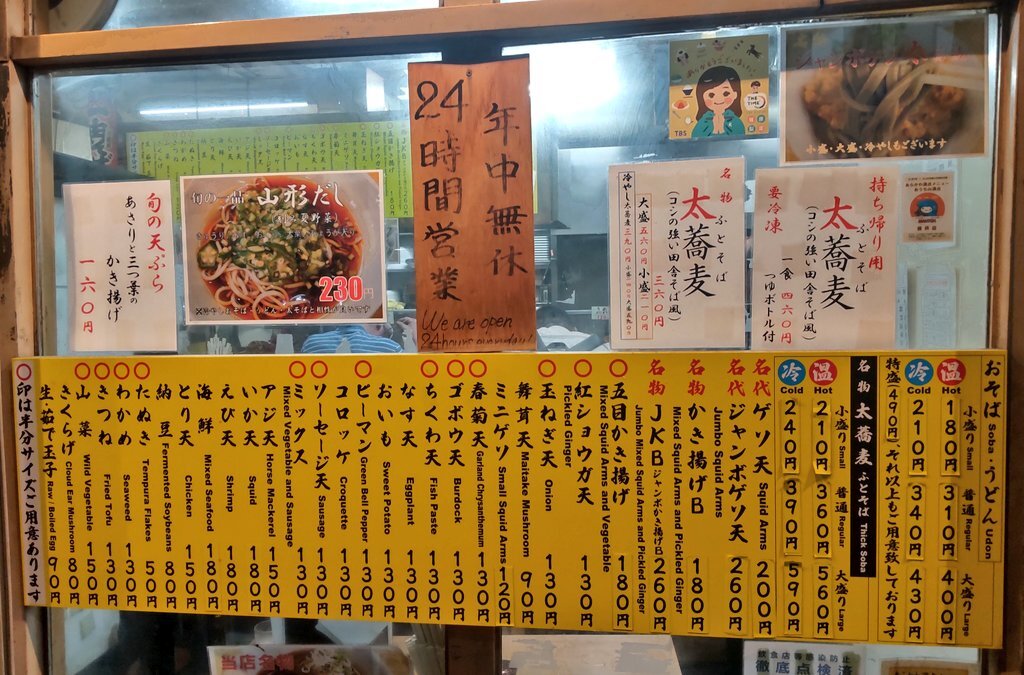 年中無休
24時間営業
We are open
24hours everyday!
旬の天ぷら
あさりと三つ葉の
かき揚げ
一六〇円
旬の一品 山形だし
230円
TBS
THE TIME
小盛・大盛・冷やしもございます
名物
ふとそば
太蕎麦
(コシの強い田舎そば風)
三六〇円
大盛 五六〇円 小盛 二一〇円
持ち帰り用
ふとそば
太蕎麦
(コシの強い田舎そば風)
要冷凍
一食 四六〇円
つゆボトル付
おそば Soba・うどん Udon
小盛り Small 普通 Regular 大盛り Large
温 Hot 180円 310円 400円
冷 Cold 210円 340円 430円
特盛(490円)それ以上もご用意致しております
名物 太蕎麦 ふとそば Thick Soba
小盛り Small 普通 Regular 大盛り Large
温 Hot 210円 360円 560円
冷 Cold 240円 390円 590円
名代 ゲソ天 Squid Arms 200円
名代 ジャンボゲソ天 Jumbo Squid Arms 260円
名物 かき揚げB Mixed Squid Arms and Pickled Ginger 180円
名物 JKB ジャンボかき揚げB Jumbo Mixed Squid Arms and Pickled Ginger 260円
〇五目かき揚げ Mixed Squid Arms and Vegetable 180円
〇紅ショウガ天 Pickled Ginger 130円
〇玉ねぎ天 Onion 130円
舞茸天 Maitake Mushroom 90円
ミニゲソ Small Squid Arms 120円
〇春菊天 Garland Chrysanthemum 130円
〇ゴボウ天 Burdock 130円
〇ちくわ天 Fish Paste 130円
なす天 Eggplant 130円
おいも Sweet Potato 130円
〇ピーマン Green Bell Pepper 130円
コロッケ Croquette 130円
〇ソーセージ天 Sausage 130円
〇ミックス Mixed Vegetable and Sausage 130円
アジ天 Horse Mackerel 150円
いか天 Squid 180円
えび天 Shrimp 180円
海鮮 Mixed Seafood 180円
とり天 Chicken 150円
納豆 Fermented Soybeans 80円
〇たぬき Tempura Flakes 50円
〇わかめ Seaweed 130円
〇きつね Fried Tofu 130円
〇山菜 Wild Vegetable 150円
きくらげ Cloud Ear Mushroom 80円
生・茹で玉子 Raw / Boiled Egg 90円
〇印は半分サイズご用意あります
当店名物
飲食店等感染防止
徹底点検済